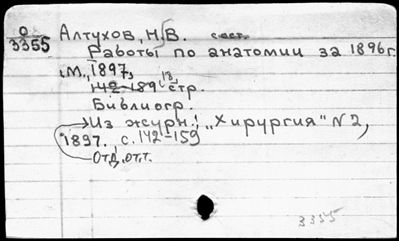 О
3355
Алтухов, Н.В. сост.
Работы по анатомии за 1896 г.
М., 1897,
142-189 13, стр.
Библиогр.
Из журн.: „Хирургия" N 2,
1897. с. 142-159
Отд. отт.
3355